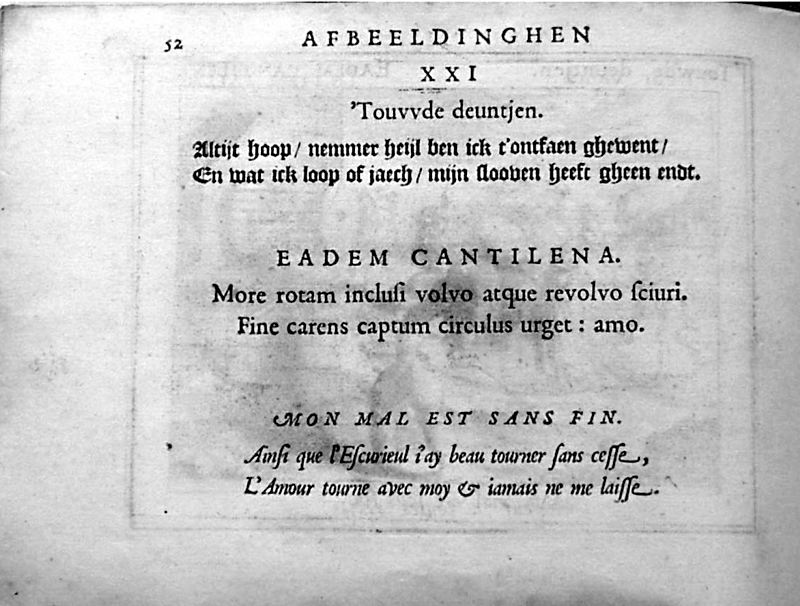 52 AFBEELDINGHEN
XXI
'Touvvde deuntjen.
Altijt hoop/ nemmer heijl ben ick t'ontfaen ghewent/
En wat ick loop of jaech/ mijn slooven heeft gheen endt.
EADEM CANTILENA.
More rotam inclusi volvo atque revolvo sciuri.
Fine carens captum circulus urget : amo.
MON MAL EST SANS FIN.
Ainsi que l'Escurieul i'ay beau tourner sans cesse,
L'Amour tourne avec moy & iamais ne me laisse.